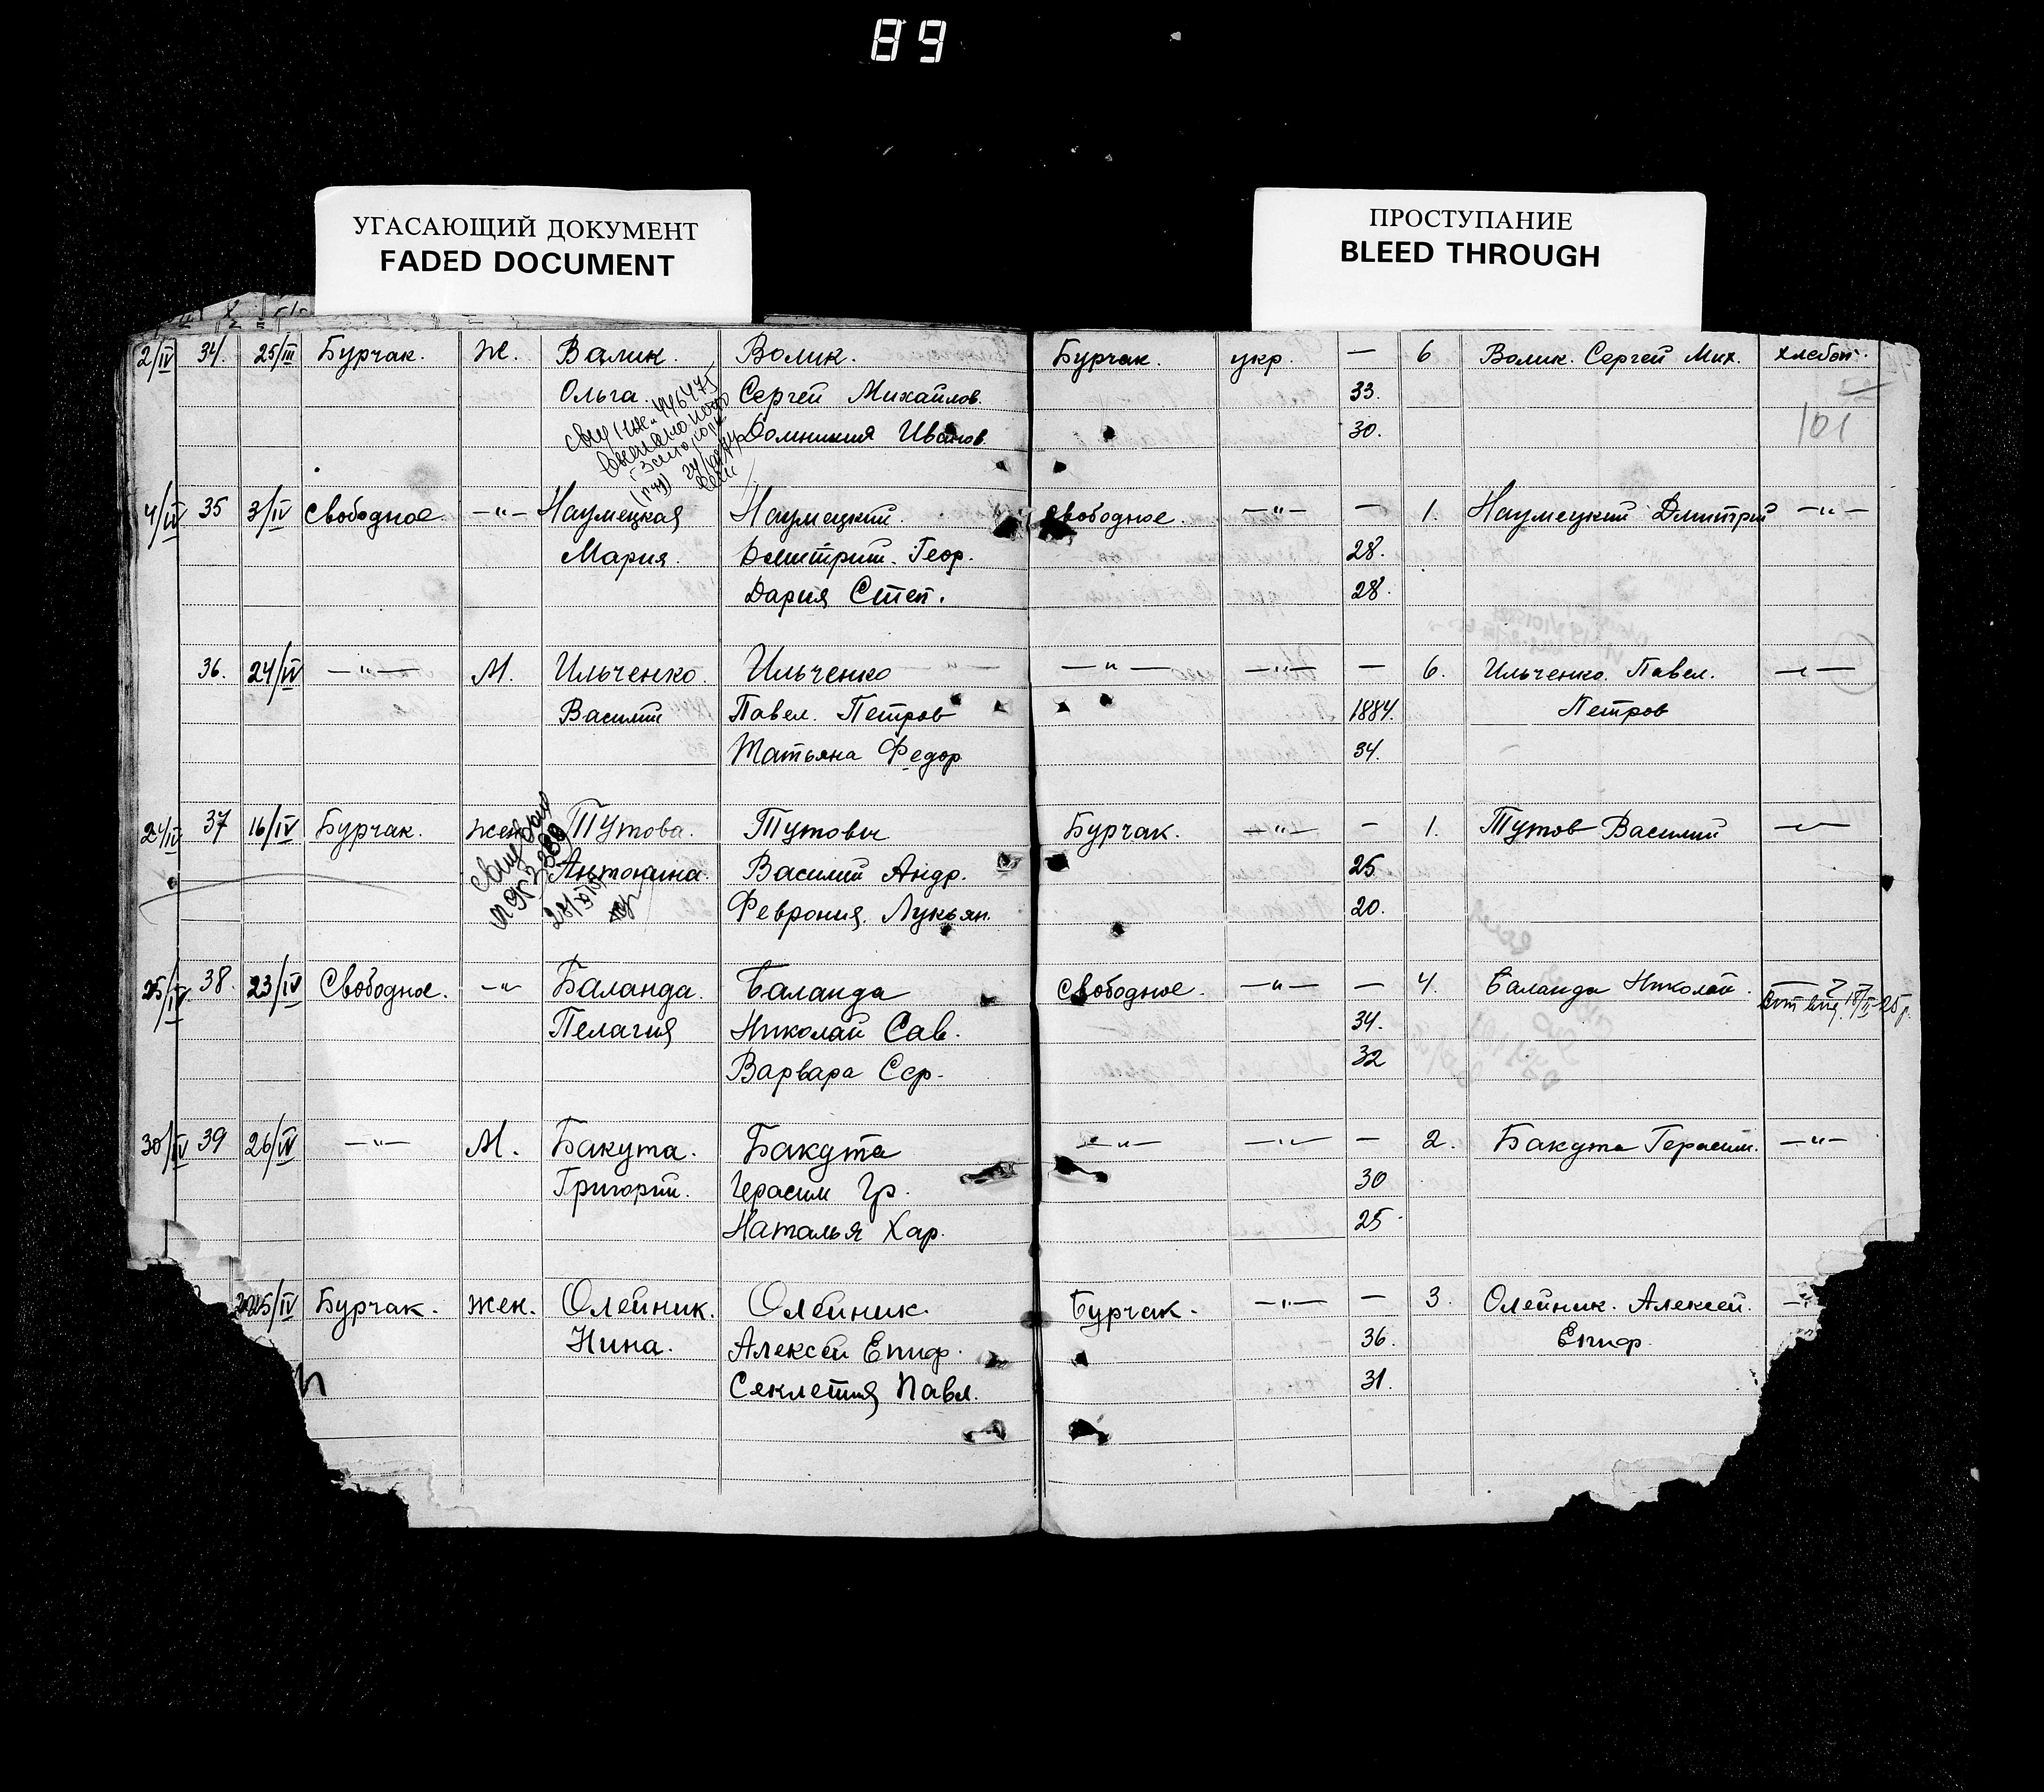 89
УГАСАЮЩИЙ ДОКУМЕНТ
FADED DOCUMENT
ПРОСТУПАНИЕ
BLEED THROUGH
2/IV 34. 25/III Бурчак. Ж. Валик. Волик. Бурчак. укр. — 6 Волик. Сергей Мих. хлебоп.
Ольга. Сергей Михайлов. 33.
101
Домникия Иванов. 30.
446475
4/IV 35 3/IV Свободное. —"— Наумецкая Наумецкий. Свободное. —"— — 1. Наумецкий Дмитрий —"—
Мария. Дмитрий. Геор. 28.
Дария Степ. 28.
36. 24/IV —"— М. Ильченко. Ильченко —"— —"— — 6. Ильченко. Павел. —"—
Василий Павел. Петров 1884. Петров
Татьяна Федор 34.
24/IV 37 16/IV Бурчак. жен Тутова. Тутовы Бурчак. —"— — 1. Тутов Василий —"—
Антонина. Василий Андр. 25
Феврония. Лукьян. 20.
25/IV 38. 23/IV Свободное. —"— Баланда. Баланда Свободное. —"— — 4. Баланда Николай.
Пелагия Николай Сав. 34.
Варвара Сер. 32
30/IV 39 26/IV —"— М. Бакута. Бакута —"— —"— — 2. Бакута Герасим. —"—
Григорий. Герасим Гр. 30
Наталья Хар. 25
25/IV Бурчак. жен. Олейник. Олейник. Бурчак. —"— — 3. Олейник. Алексей. —"—
Нина. Алексей Епиф. 36. Епиф.
Секлетия Павл. 31.